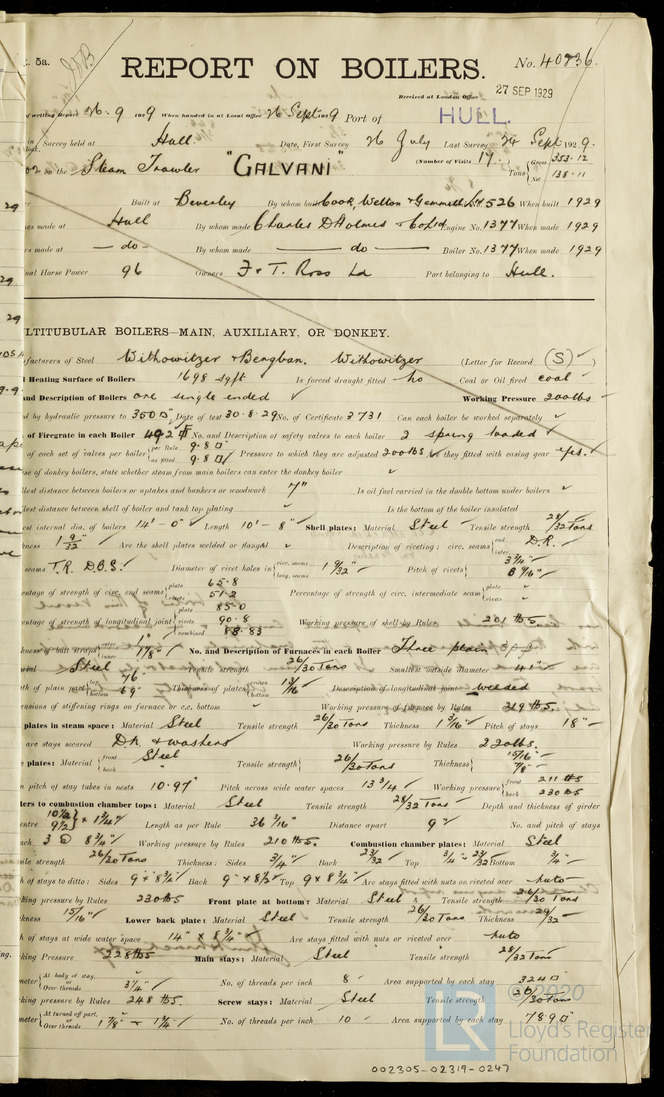 5a.
REPORT ON BOILERS.
No. 40736.
Received at London Office 27 SEP 1929
writing Report 26.9.1929 When handed in at Local Office 26 Sept 1929 Port of HULL.
Survey held at Hull. Date, First Survey 26 July Last Survey 24 Sept 1929.
on the Steam Trawler "GALVANI" (Number of Visits 17.) Tons { Gross 353.12 Net 138.11
Built at Beverley By whom built Cook, Welton & Gemmell Ld 526 When built 1929
made at Hull By whom made Charles D Holmes & Co Ld Engine No. 1377 When made 1929
made at — do — By whom made — do — Boiler No. 1377 When made 1929
Horse Power 96 Owners F & T. Ross Ld Port belonging to Hull.
LTITUBULAR BOILERS—MAIN, AUXILIARY, OR DONKEY.
facturers of Steel Withowitzer & Bengban. Withowitzer (Letter for Record (S) )
Heating Surface of Boilers 1698 sqft Is forced draught fitted no Coal or Oil fired coal
and Description of Boilers one single ended Working Pressure 200lbs
d by hydraulic pressure to 350 Date of test 30.8.29 No. of Certificate 3731 Can each boiler be worked separately
of Firegrate in each Boiler 49.2 No. and Description of safety valves to each boiler 2 spring loaded
of each set of valves per boiler { per Rule 9.8 as fitted 9.8 Pressure to which they are adjusted 200lbs they fitted with easing gear yes.
se of donkey boilers, state whether steam from main boilers can enter the donkey boiler
lest distance between boilers or uptakes and bunkers or woodwork 7" Is oil fuel carried in the double bottom under boilers
lest distance between shell of boiler and tank top plating Is the bottom of the boiler insulated
est internal dia. of boilers 14'-0" Length 10'-8" Shell plates: Material Steel Tensile strength 28/32 Tons
ness 1 9/32 Are the shell plates welded or flanged Description of riveting: circ. seams { end D.R. inter.
seams T.R. D.B.S. Diameter of rivet holes in { circ. seams long. seams 1 9/32" Pitch of rivets { 3 3/4" 8 9/16"
centage of strength of circ. end seams { plate 65.8 rivets 51.2 Percentage of strength of circ. intermediate seam { plate rivets
centage of strength of longitudinal joint { plate 85.0 rivets 90.8 combined 88.83 Working pressure of shell by Rules 201 lbs.
ness of butt straps { outer 1" inner 1 1/8" No. and Description of Furnaces in each Boiler Three plain
Steel Tensile strength 26/30 Tons Smallest outside diameter 41"
th of plain part { top 76 bottom 69 Thickness of plates { crown bottom 13/16 Description of longitudinal joint welded
ensions of stiffening rings on furnace or c.c. bottom Working pressure of furnace by Rules 219 lbs.
plates in steam space: Material Steel Tensile strength 26/30 Tons Thickness 1 3/16" Pitch of stays 18"
are stays secured D.N & washers Working pressure by Rules 220lbs.
plates: Material { front Steel back " Tensile strength { 26/30 Tons Thickness { 15/16" 7/8"
n pitch of stay tubes in nests 10.97" Pitch across wide water spaces 13 3/4 Working pressure { front 211 lbs back 230 lbs
ers to combustion chamber tops: Material Steel Tensile strength 28/32 Tons Depth and thickness of girder
entre 10 1/2 9 1/2 } x 1 3/4" Length as per Rule 36 3/16" Distance apart 9" No. and pitch of stays
ach 3 @ 8 3/4" Working pressure by Rules 210 lbs. Combustion chamber plates: Material Steel
sile strength 26/30 Tons Thickness: Sides 3/4" Back 23/32 Top 3/4" 23/32 Bottom 3/4"
h of stays to ditto: Sides 9 x 8 3/4 Back 9" x 8 1/2 Top 9 x 8 3/4 Are stays fitted with nuts or riveted over nuts
king pressure by Rules 230 lbs Front plate at bottom: Material Steel Tensile strength 26/30 Tons
kness 15/16" Lower back plate: Material Steel Tensile strength 26/30 Tons Thickness 29/32
h of stays at wide water space 14" x 8 3/4" Are stays fitted with nuts or riveted over nuts
king Pressure 228 lbs Main stays: Material Steel Tensile strength 28/32 Tons
meter { At body of stay, or Over threads 3 1/4" No. of threads per inch 8 Area supported by each stay 324
king pressure by Rules 248 lbs. Screw stays: Material Steel Tensile strength 26/30 Tons
meter { At turned off part, or Over threads 1 7/8" – 1 3/4" No. of threads per inch 10 Area supported by each stay 78.9
© 2020
LR Lloyd's Register
Foundation
002305-02319-0247